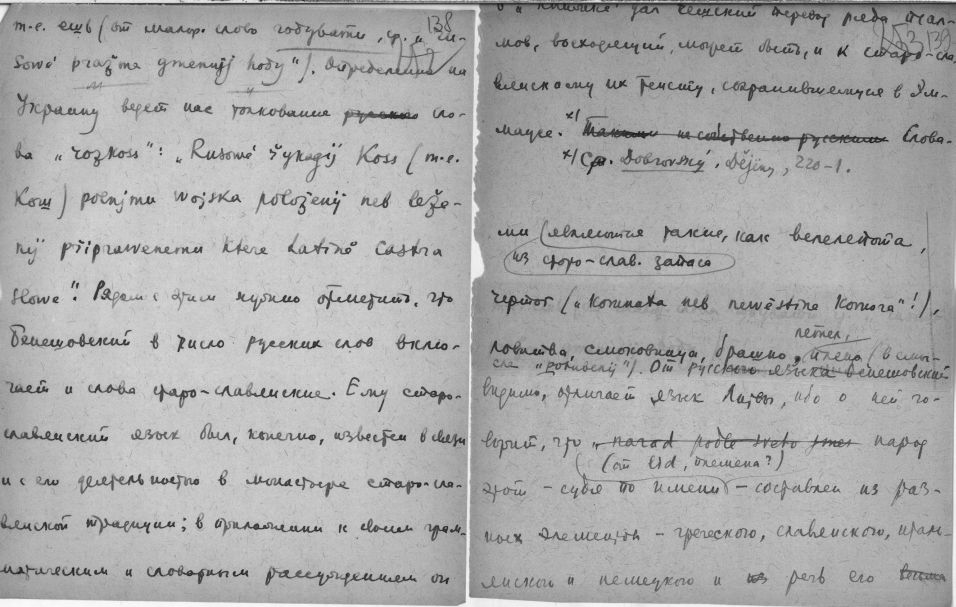 138
т.е. ешь (от малор. слово годувати, ср.
prazma gmenugj hody"). Определенно на
Украину ведет нас толкование сло-
ва „rozkoss": „Rusowé Koss (т.е.
Кош) wojska položenj neb leže-
nj připrawenemu ktere Latině Castra
slowe". Рядом с этим нужно отметить, что
Бенешовский в число русских слов вклю-
чает и слова старо-славянские. Ему старо-
славянский язык был, конечно, известен в связи
и с его деятельностью в монастыре старо-сла-
вянской традиции; в приложении к своим грам-
матическим и словарным рассуждениям он
139
дал чешский перевод ряда псал-
мов, восходящий, может быть, и к старо-сла-
вянскому их тексту, сохранившемуся в Эм-
маусе. x) Такими не собственно русскими Слова-
x) Ср. Dobrovský, Dějiny, 220-1.
ми являются такие, как велелепота,
из старо-слав. запаса
чертог („komnata neb newěstina komora"!),
пепел,
ловитва, смоковница, брашно, племя (в смы-
сле). От русского языка Бенешовский
видимо, отличает язык Литвы, ибо о ней го-
ворит, что „narod podle народ
(от lid, племена?)
этот – судя по имени – составлен из раз-
ных элементов – греческого, славянского, италь-
янского и немецкого и из речь его весьма